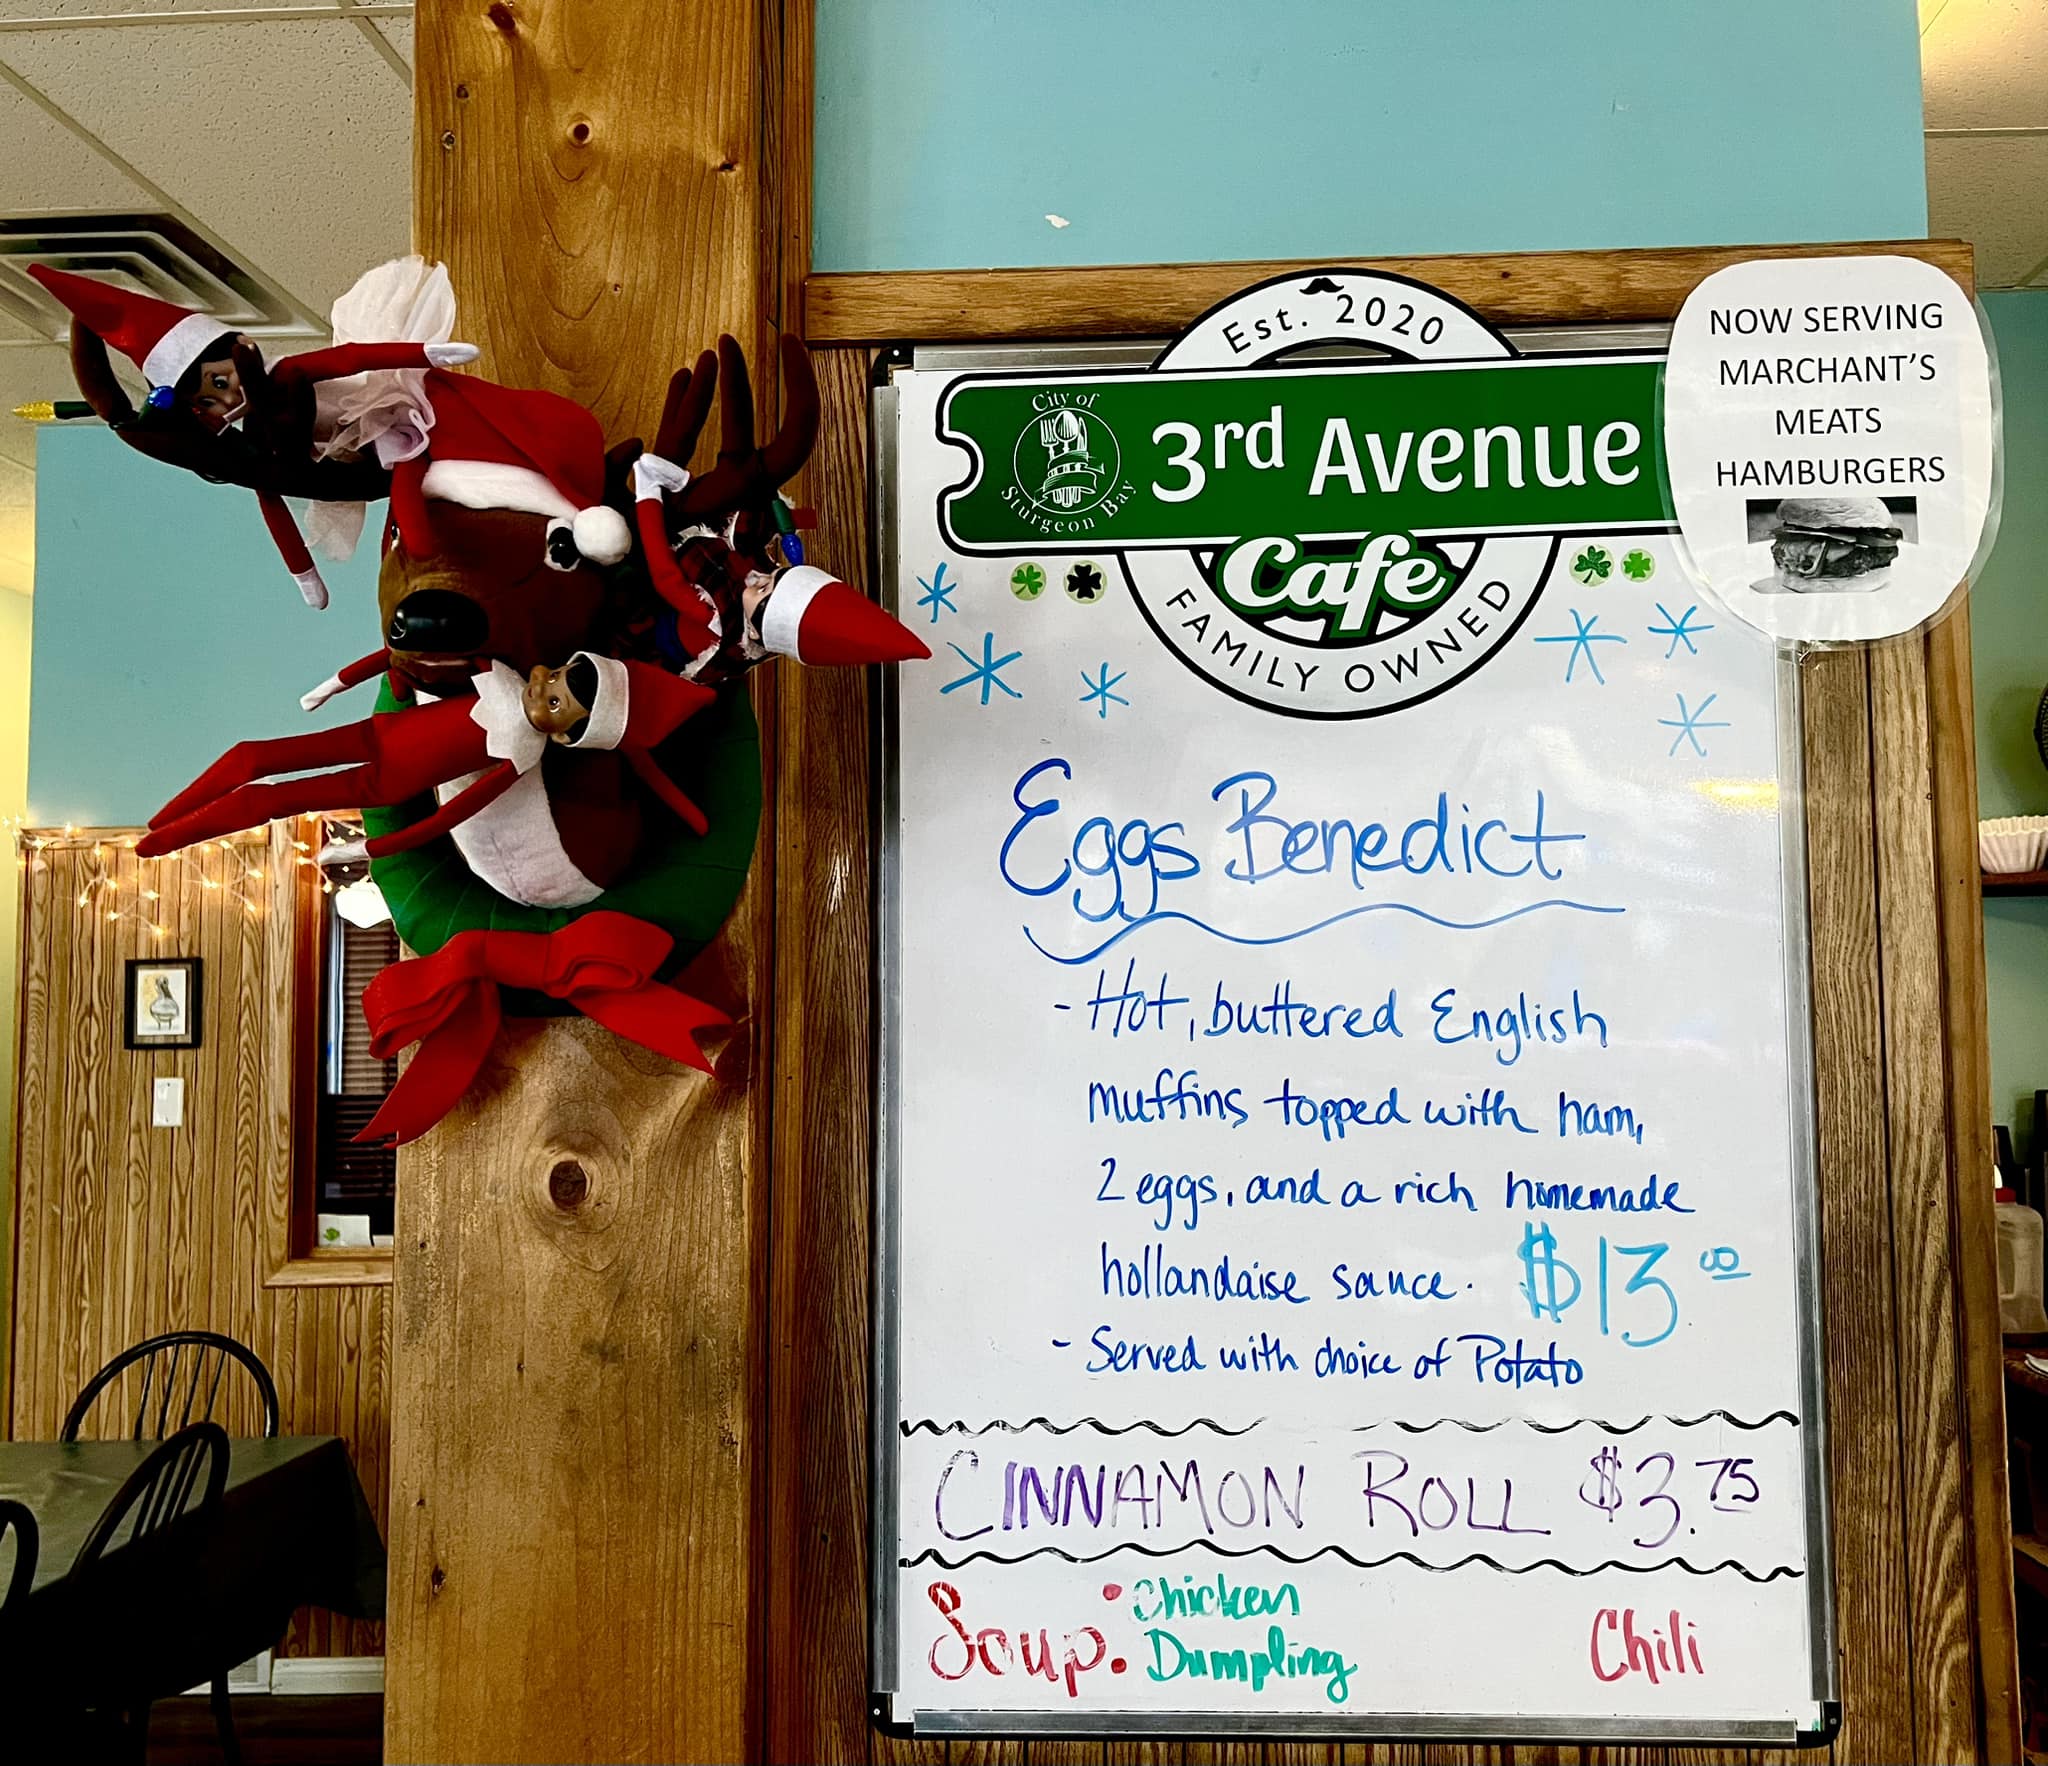 Est. 2020
City of
Sturgeon Bay
3rd Avenue
Cafe
FAMILY OWNED
NOW SERVING
MARCHANT'S
MEATS
HAMBURGERS
Eggs Benedict
- Hot, buttered English
muffins topped with ham,
2 eggs, and a rich homemade
hollandaise sauce. $13.00
- Served with choice of Potato
CINNAMON ROLL $3.75
Soup: Chicken
Dumpling
Chili